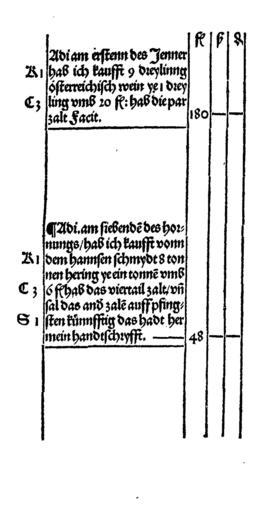 fl ß ₰
Adi am erstenn des Jenner
K 1 hab ich kaufft 9 dreylinng
österreichisch wein ye 1 drey
C 3 ling vmb 20 fl: hab die par
zalt Facit. 180 — —
¶Adi. am siebendē des hor-
nungs/hab ich kaufft vonn
K 1 dem hannsen schmydt 8 ton
nen hering ye ein tonnē vmb
C 3 6 fl hab das viertail zalt/vñ
sal das and̄ zalē auff pfing-
S 1 sten künnfftig das hadt her
mein handtschryfft. — 48 — —